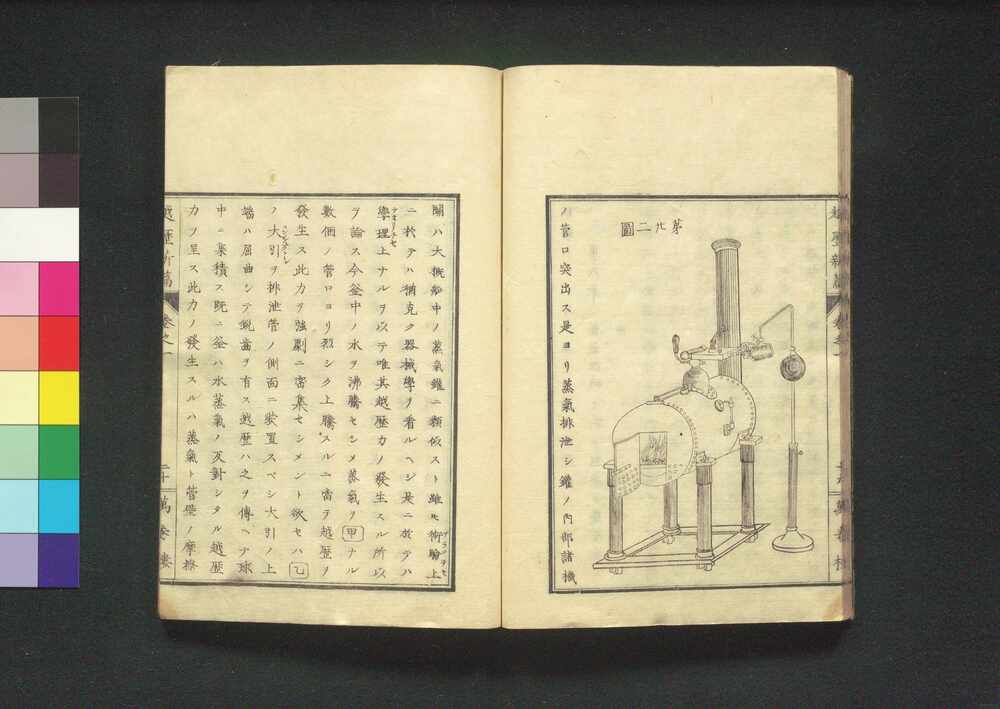 第廿二圖
ノ菅口突出ス是ヨリ蒸氣排泄シ鑵ノ内部諸機
關ハ大概船中ノ蒸氣鑵ニ類似スト雖モ術驗上
ニ於テハ稍克ク器械學ヲ看ルヘシ是ニ於テハ
學理上ナルヲ以テ唯其越歴力ノ發生スル所以
ヲ論ス今釜中ノ水ヲ沸騰セシメ蒸氣ヲ甲ナル
數個ノ菅口ヨリ烈シク上騰スルニ當テ越歴ヲ
發生ス此力ヲ強劇ニ密集セシメント欲セハ乙
ノ大引ヲ排泄菅ノ側面ニ裝置スベシ大引ノ上
端ハ屈曲シテ鋭齒ヲ有ス越歴ハ之ヲ傳ヘテ球
中ニ集積ス既ニ釜ハ水蒸氣ノ反對シタル越歴
力ヲ呈ス此力ノ發生スルハ蒸氣ト菅壁ノ摩擦
越歴新篇 卷之一 二十 萬卷樓